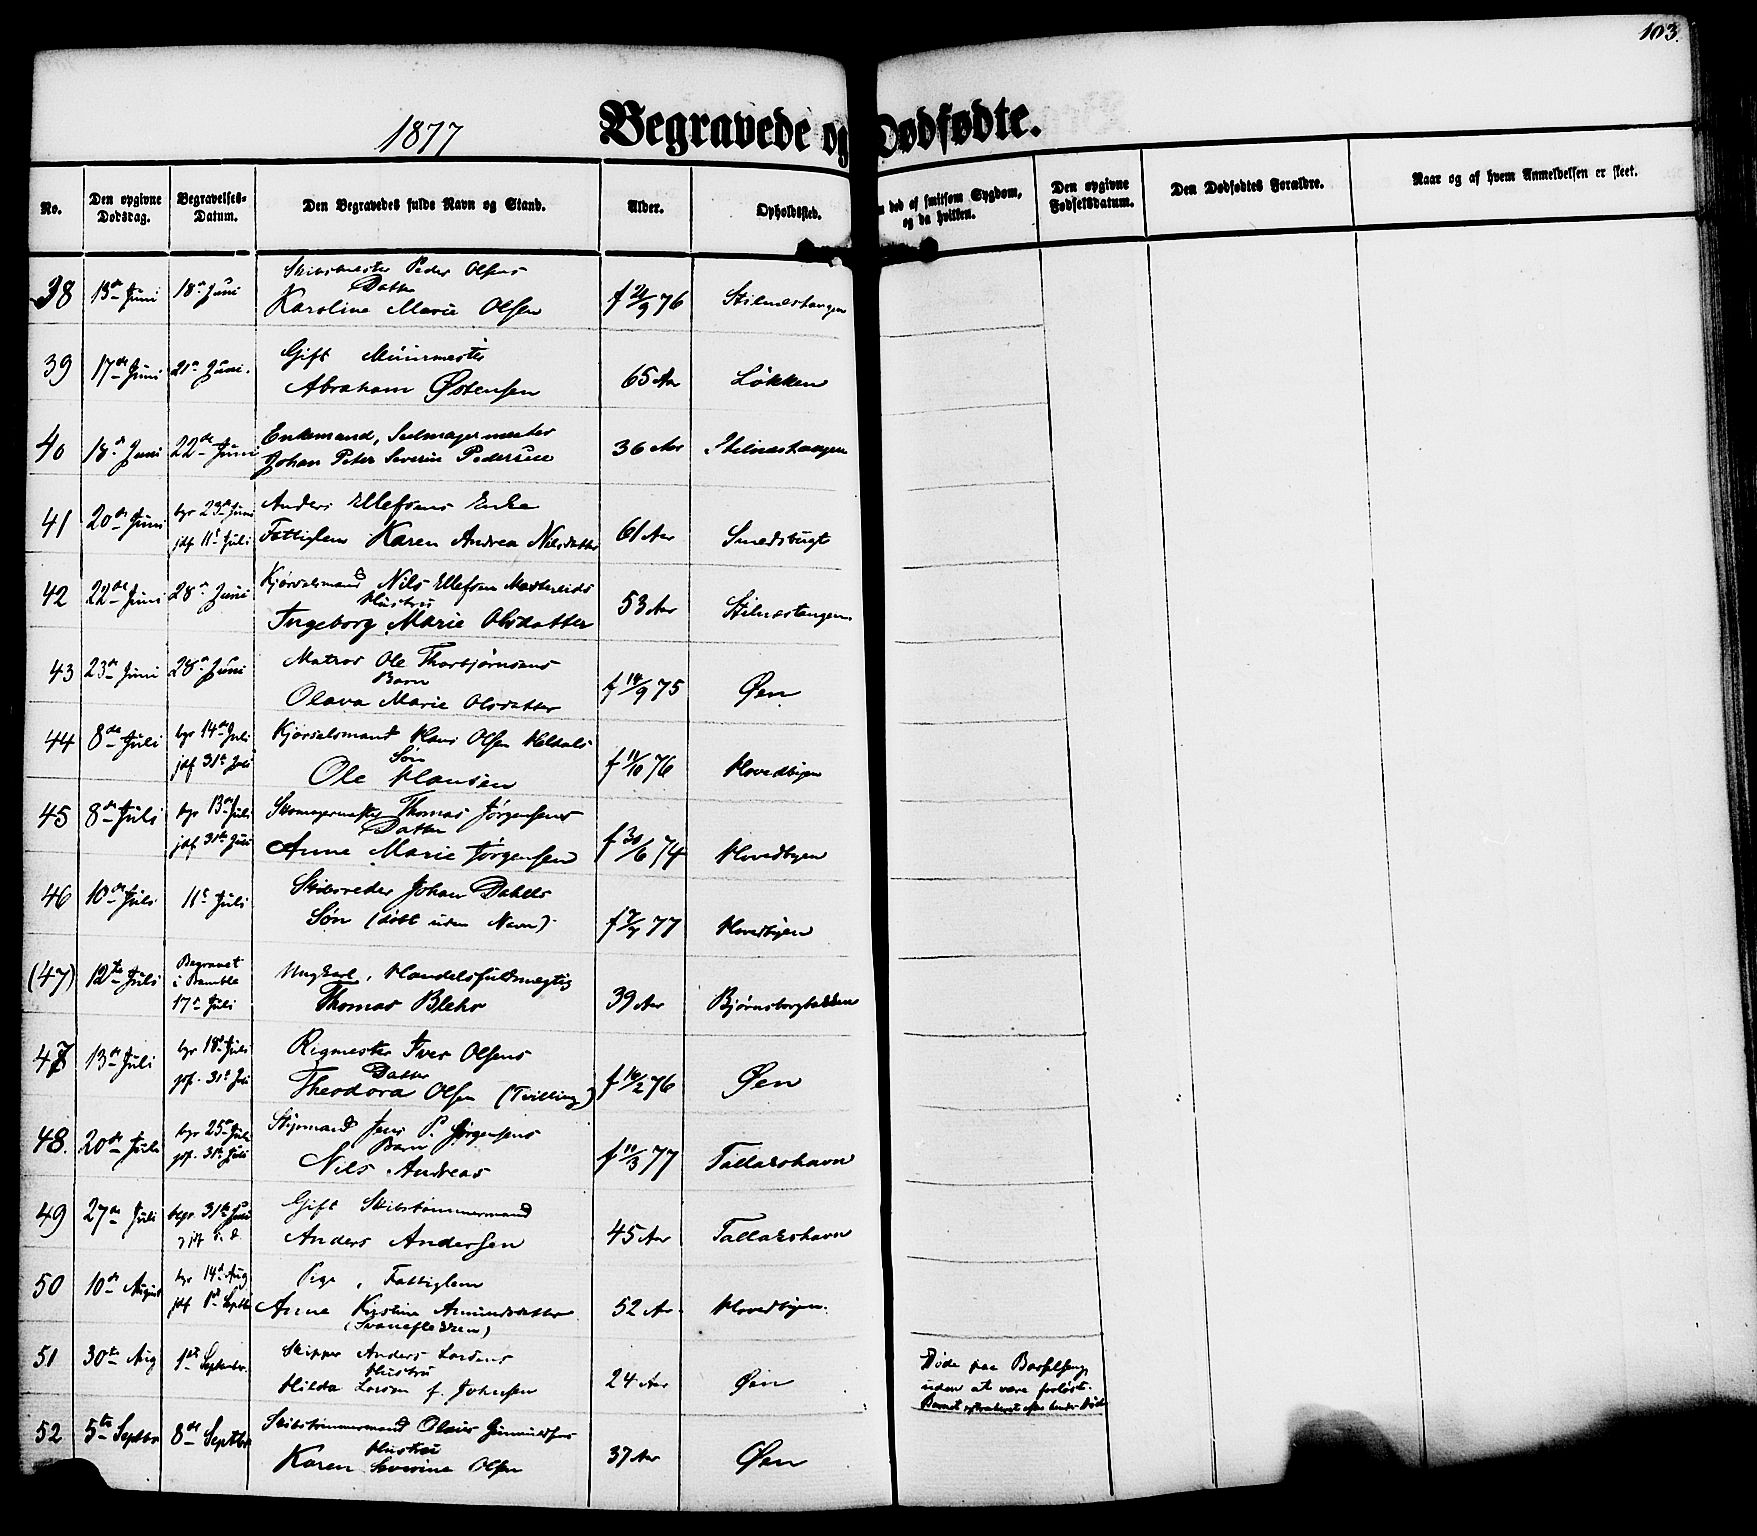 103.
1877
Begravede og Dødfødte.
No.
Den opgivne Dødsdag.
Begravelses-Datum.
Den Begravedes fulde Navn og Stand.
Alder.
Opholdssted.
død af smitsom Sygdom, og da hvilken.
Den opgivne Fødselsdatum.
Den Dødfødtes Forældre.
Naar og af hvem Anmeldelsen er skeet.
38 13de Juni 18de Juni Skibsmester Peder Olsens
Datter
Karoline Marie Olsen f 21/9 76 Stilnestangen
39 17de Juni 21de Juni. Gift Muurmester
Abraham Østensen 65 Aar Løkken
40 18de Juni 22de Juni Enkemand, Seilmagermester
Johan Peter Severin Pedersen 36 Aar Stilnestangen
41 20de Juni bgr 23de Juni Anders Ellefsens Enke
jdf 11te Juli Fattiglem Karen Andrea Nilsdatter 61 Aar Smedsbugt
42 22de Juni 28de Juni Kjørselsmand Nils Ellefsen
Hustru
Ingeborg Marie Olsdatter 53 Aar Stilnestangen
43 23de Juni 28de Juni Matros Ole Thorbjørnsens
Barn
Olava Marie Olsdatter f 14/9 75 Øen
44 8de Juli bgr 14de Juli Kjørselsmand Hans Olsen
jdf 31te Juli Søn
Ole Hansen f 11/10 76 Hovedbyen
45 8de Juli bgr 13de Juli Skomagermester Thomas Jørgensens
jdf 31te Juli Datter
Anne Marie Jørgensen f 30/6 74 Hovedbyen
46 10de Juli 11te Juli Skibsreder Johan Dahls
Søn (døbt uden Navn) f 77 Hovedbyen
(47) 12te Juli Begravet
i Bamble
17de Juli Ungkarl, Handelsfuldmægtig
Thomas Blehr 39 Aar Bjørnsborgbakken
47 13de Juli bgr 18de Juli Rigmester Iver Olsens
jdf. 31te Juli Datter
Theodora Olsen (Tvilling) f 16/2 76 Øen
48. 20de Juli bgr 25de Juli Styrmand Jens P. Jørgensens
jdf. 31te Juli Barn
Nils Andreas f 11/3 77 Tallakshavn
49 27de Juli begr 31te Juli Gift Skibstømmermand
Anders Andersen 45 Aar Tallakshavn
50 10de August bgr 14de Aug Pige, Fattiglem
jdf 1ste Septbr Anne Kirstine Amundsdatter
(Svaneflekken) 52 Aar Hovedbyen.
51 30te Aug 1ste September Skipper Anders Larsens
Hustru
Hilda Larsen f. Johnsen 24 Aar Øen
Døde paa Barselseng,
uden at være forløst.
Barnet efter hendes Død
52 5te Septbr 8de Septbr Skibstømmermand Olaus Gunnuldsens
Hustru
Karen Severine Olsen 37 Aar Øen